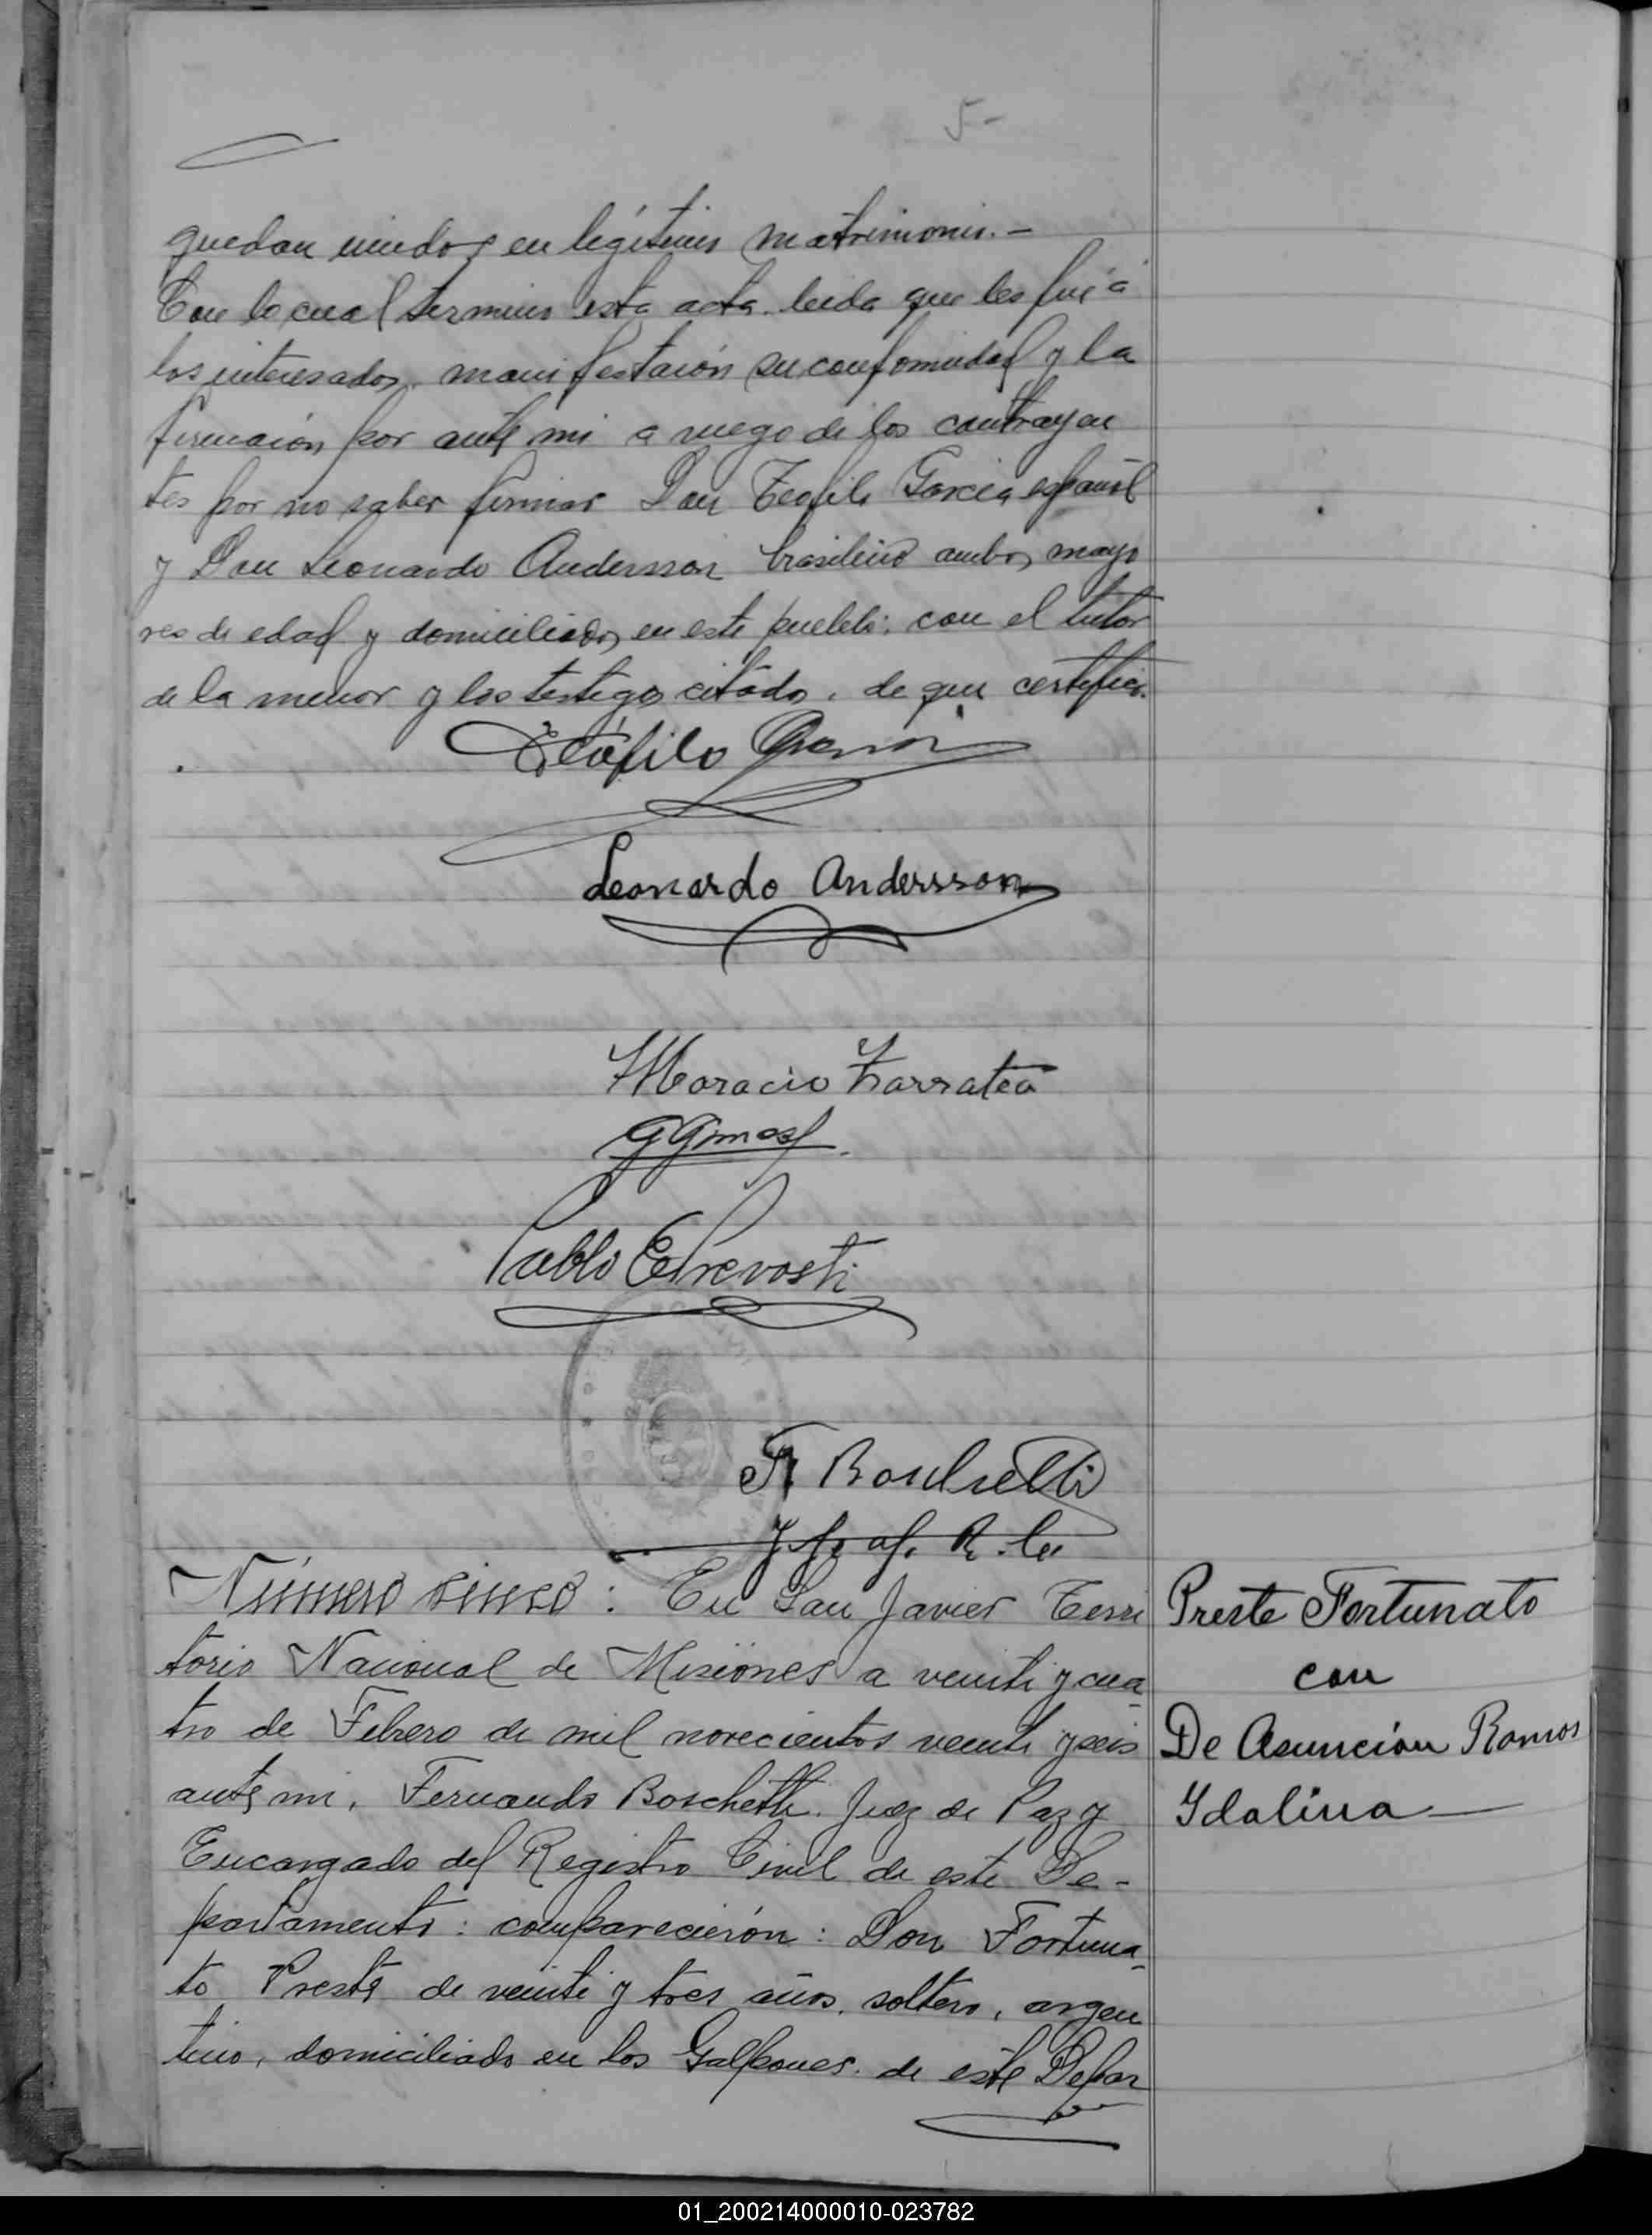 5-
quedan unidos en legítimo matrimonio.-
Con lo cual termino esta acta. leida que les fué á
los interesados, manifestaión su confomidad y la
firmaión por ante mi a ruego de los contrayen
tes por no saber firmar Don Teofilo Garcia español
y Don Leonardo Andersson brasilero ambos mayo
res de edad y domiciliados en este pueblo; con el tutor
de la menor y los testigos citados, de que certifico.
Teófilo Garcia
Leonardo Anderssson
Horacio Zarratea
Pablo E Prevosti
F. Boschetti
Número cinco: En San Javier Terri
torio Nacional de Misiones a veinti y cua-
tro de Febrero de mil novecientos veinte y seis
ante mi, Fernando Boschetti. Juez de Paz y
Encargado del Registro Civil de este De-
partamento: comparecierón: Don Fortuna-
to Preste de veinte y tres años, soltero, argen
tino, domiciliado en los Galpones. de este Depar
Preste Fortunato
con
De Asunción Ramos
Idalina
01_200214000010-023782